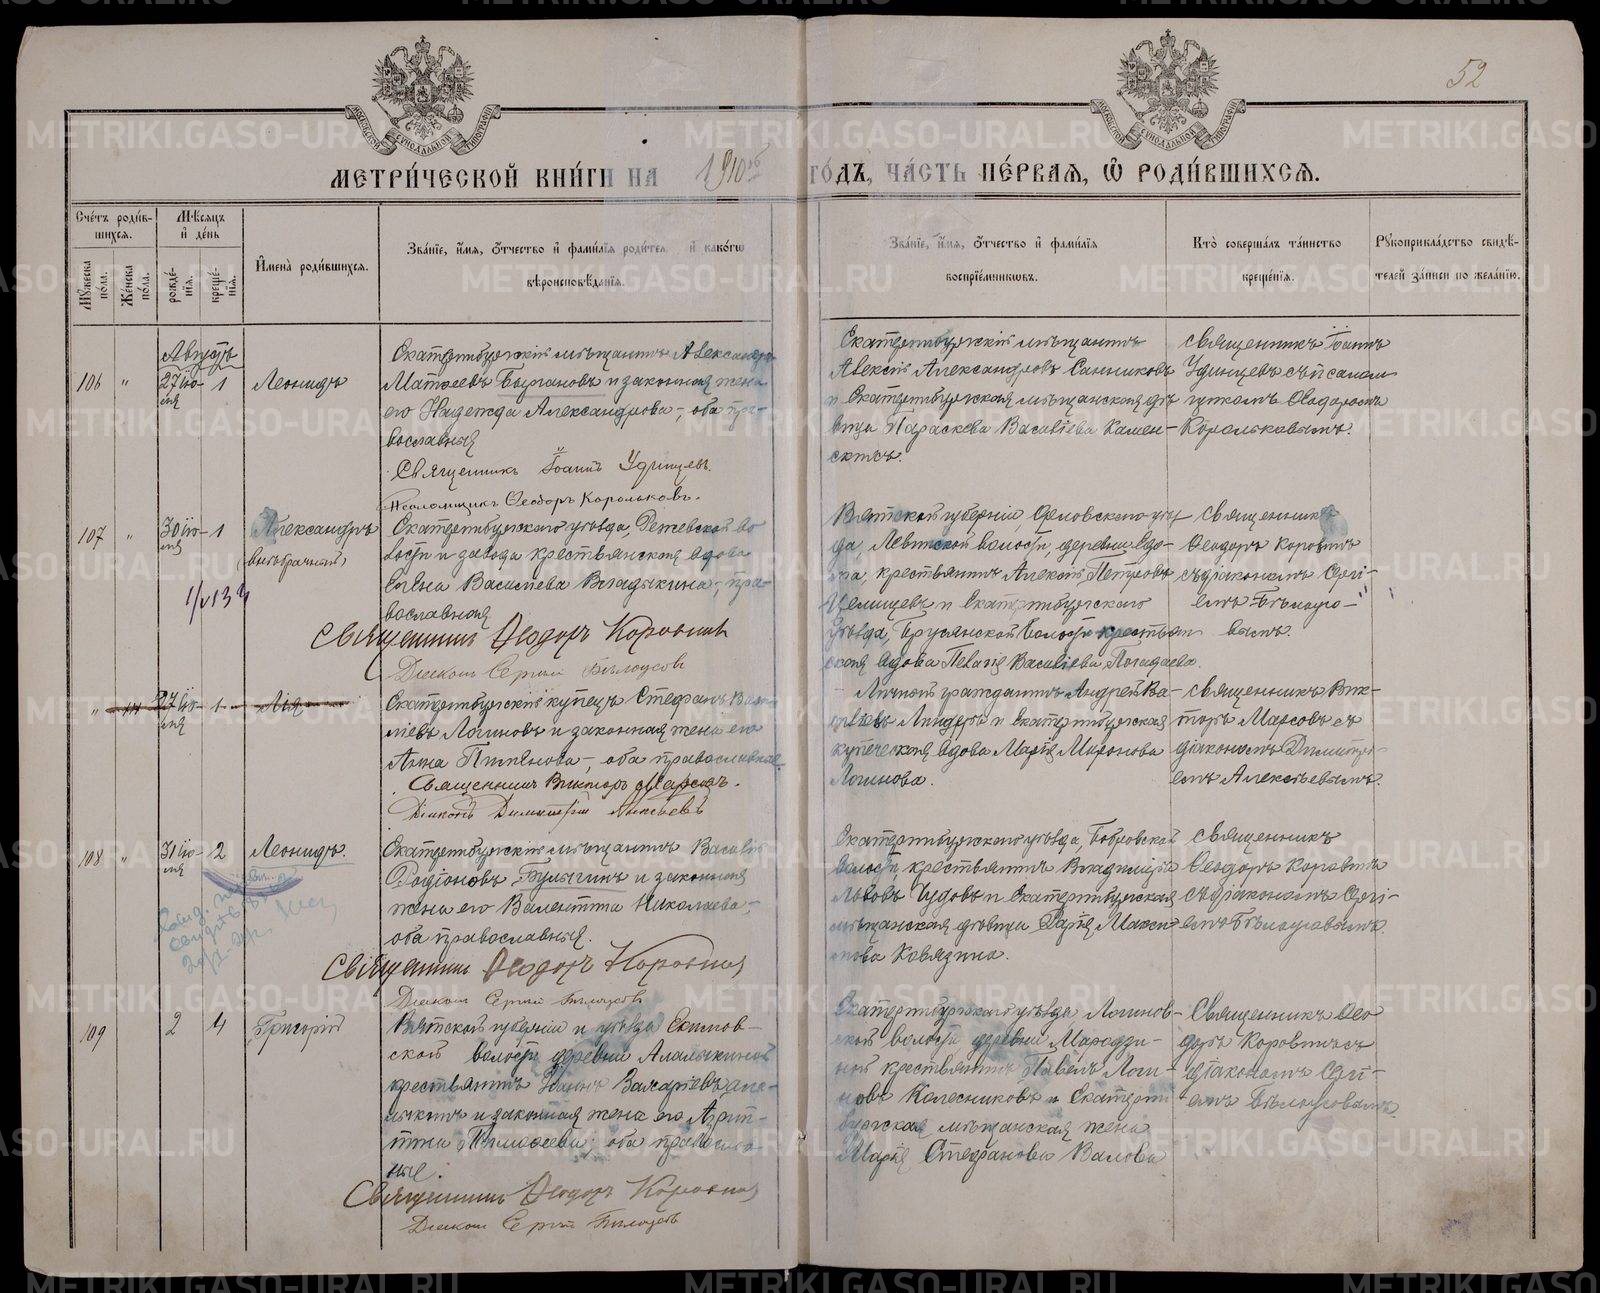 52
МЕТРИ́ЧЕСКОЙ КНИ́ГИ НА 1910 ГО́ДЪ, ЧА́СТЬ ПЕ́РВАЯ, Ѡ РОДИ́ВШИХСЯ.
Сче́тъ роди́в-
шихся.
Мѣ́сяцъ
и́ де́нь
Му́жеска
по́ла.
Же́нска
по́ла.
рожде́-
нїя.
креще́-
нїя.
И҆мена̀ роди́вшихся.
Зва́нїе, и҆́мя, ѻ҆́тчество и҆ фами́лїя роди́тел и҆ како́гѡ
вѣроисповѣ́данїя.
Зва́нїе, и҆́мя, ѻ҆́тчество и҆ фами́лїя
воспрїе́мникѡвъ.
Кто̀ соверша́лъ та́инство
креще́нїя.
Рукоприкла́дство свидѣ́-
телей за́писи по жела́нїю.
Августъ
106 " 27 ію-
ля 1 Леонидъ
Екатеринбургскій мѣщанинъ Александръ
Матѳеевъ и законная жена
его Надежда Александрова, оба пра-
вославныя
Священникъ Іоаннъ Удинцевъ.
Псаломщикъ Ѳеодоръ Корольковъ.
Екатеринбургскій мѣщанинъ
Алексій Александровъ Санниковъ
и Екатеринбургская мѣщанская дѣ
вица Параскева Васильева Камен-
скихъ.
Священникъ Іоаннъ
Удинцевъ съ псалом
щикомъ Ѳеодоромъ
Корольковымъ.
107 " 30 ію-
ля 1 Александръ
(внѣбрачный)
Екатеринбургскаго уѣзда, Режевской во
лости и завода крестьянская вдова
Елена Васильева пра-
вославная
Священникъ Ѳеодоръ Коровинъ
Діаконъ Сергій Бѣлоусовъ
Вятской губерніи Орловскаго уѣз
да, волости, деревни
крестьянинъ Алексій Петровъ
и Екатеринбургскаго
уѣзда, Бруснянской волости крестьян
ская вдова Пелагія Васильева Погадаева.
Священникъ
Ѳеодоръ Коровинъ
съ діакономъ Сергі-
емъ Бѣлоусо-
вымъ.
" 27 ію-
ля 1 Лія
Екатеринбургскій купецъ Стефанъ Васи
ліевъ Логиновъ и законная жена его
Анна оба православные
Священникъ Викторъ Марсовъ.
Діаконъ Димитрій Алексѣевъ
Личный гражданинъ Андрей Ва-
Линдеръ и Екатеринбургская
купеческая вдова Марія Миронова
Логинова.
Священникъ Вик-
торъ Марсовъ съ
діакономъ Димитрі-
емъ Алексѣевымъ.
108 " 31 ію-
ля 2 Леонидъ.
Екатеринбургскій мѣщанинъ Василій
Родіоновъ Булыгинъ и законная
жена его Валентина Николаева,
оба православныя.
Священникъ Ѳеодоръ Коровинъ
Діаконъ Сергій Бѣлоусовъ
Екатеринбургскаго уѣзда, Бобровской
волости, крестьянинъ Владиміръ
Львовъ Чудовъ и Екатеринбургская
мѣщанская дѣвица Дарія Макси
мова Ковязина.
Священникъ
Ѳеодоръ Коровинъ
съ діакономъ Сергі-
емъ Бѣлоусовымъ
109 2 4 Григорій
Вятской губерніи и уѣзда
ской волости деревни
крестьянинъ Іоаннъ Захаріевъ
и законная жена его Агрип-
пина Тимоѳеева; оба православ
ные.
Священникъ Ѳеодоръ Коровинъ
Діаконъ Сергій Бѣлоусовъ
Екатеринбургскаго уѣзда Логинов-
ской волости деревни
ной крестьянинъ Павелъ Логи-
новъ Колесниковъ и Екатерин
бургская мѣщанская жена
Марія Стефанова Валова
Священникъ Ѳео
доръ Коровинъ съ
діакономъ Сергі-
емъ Бѣлоусовымъ
METRIKI.GASO-URAL.RU